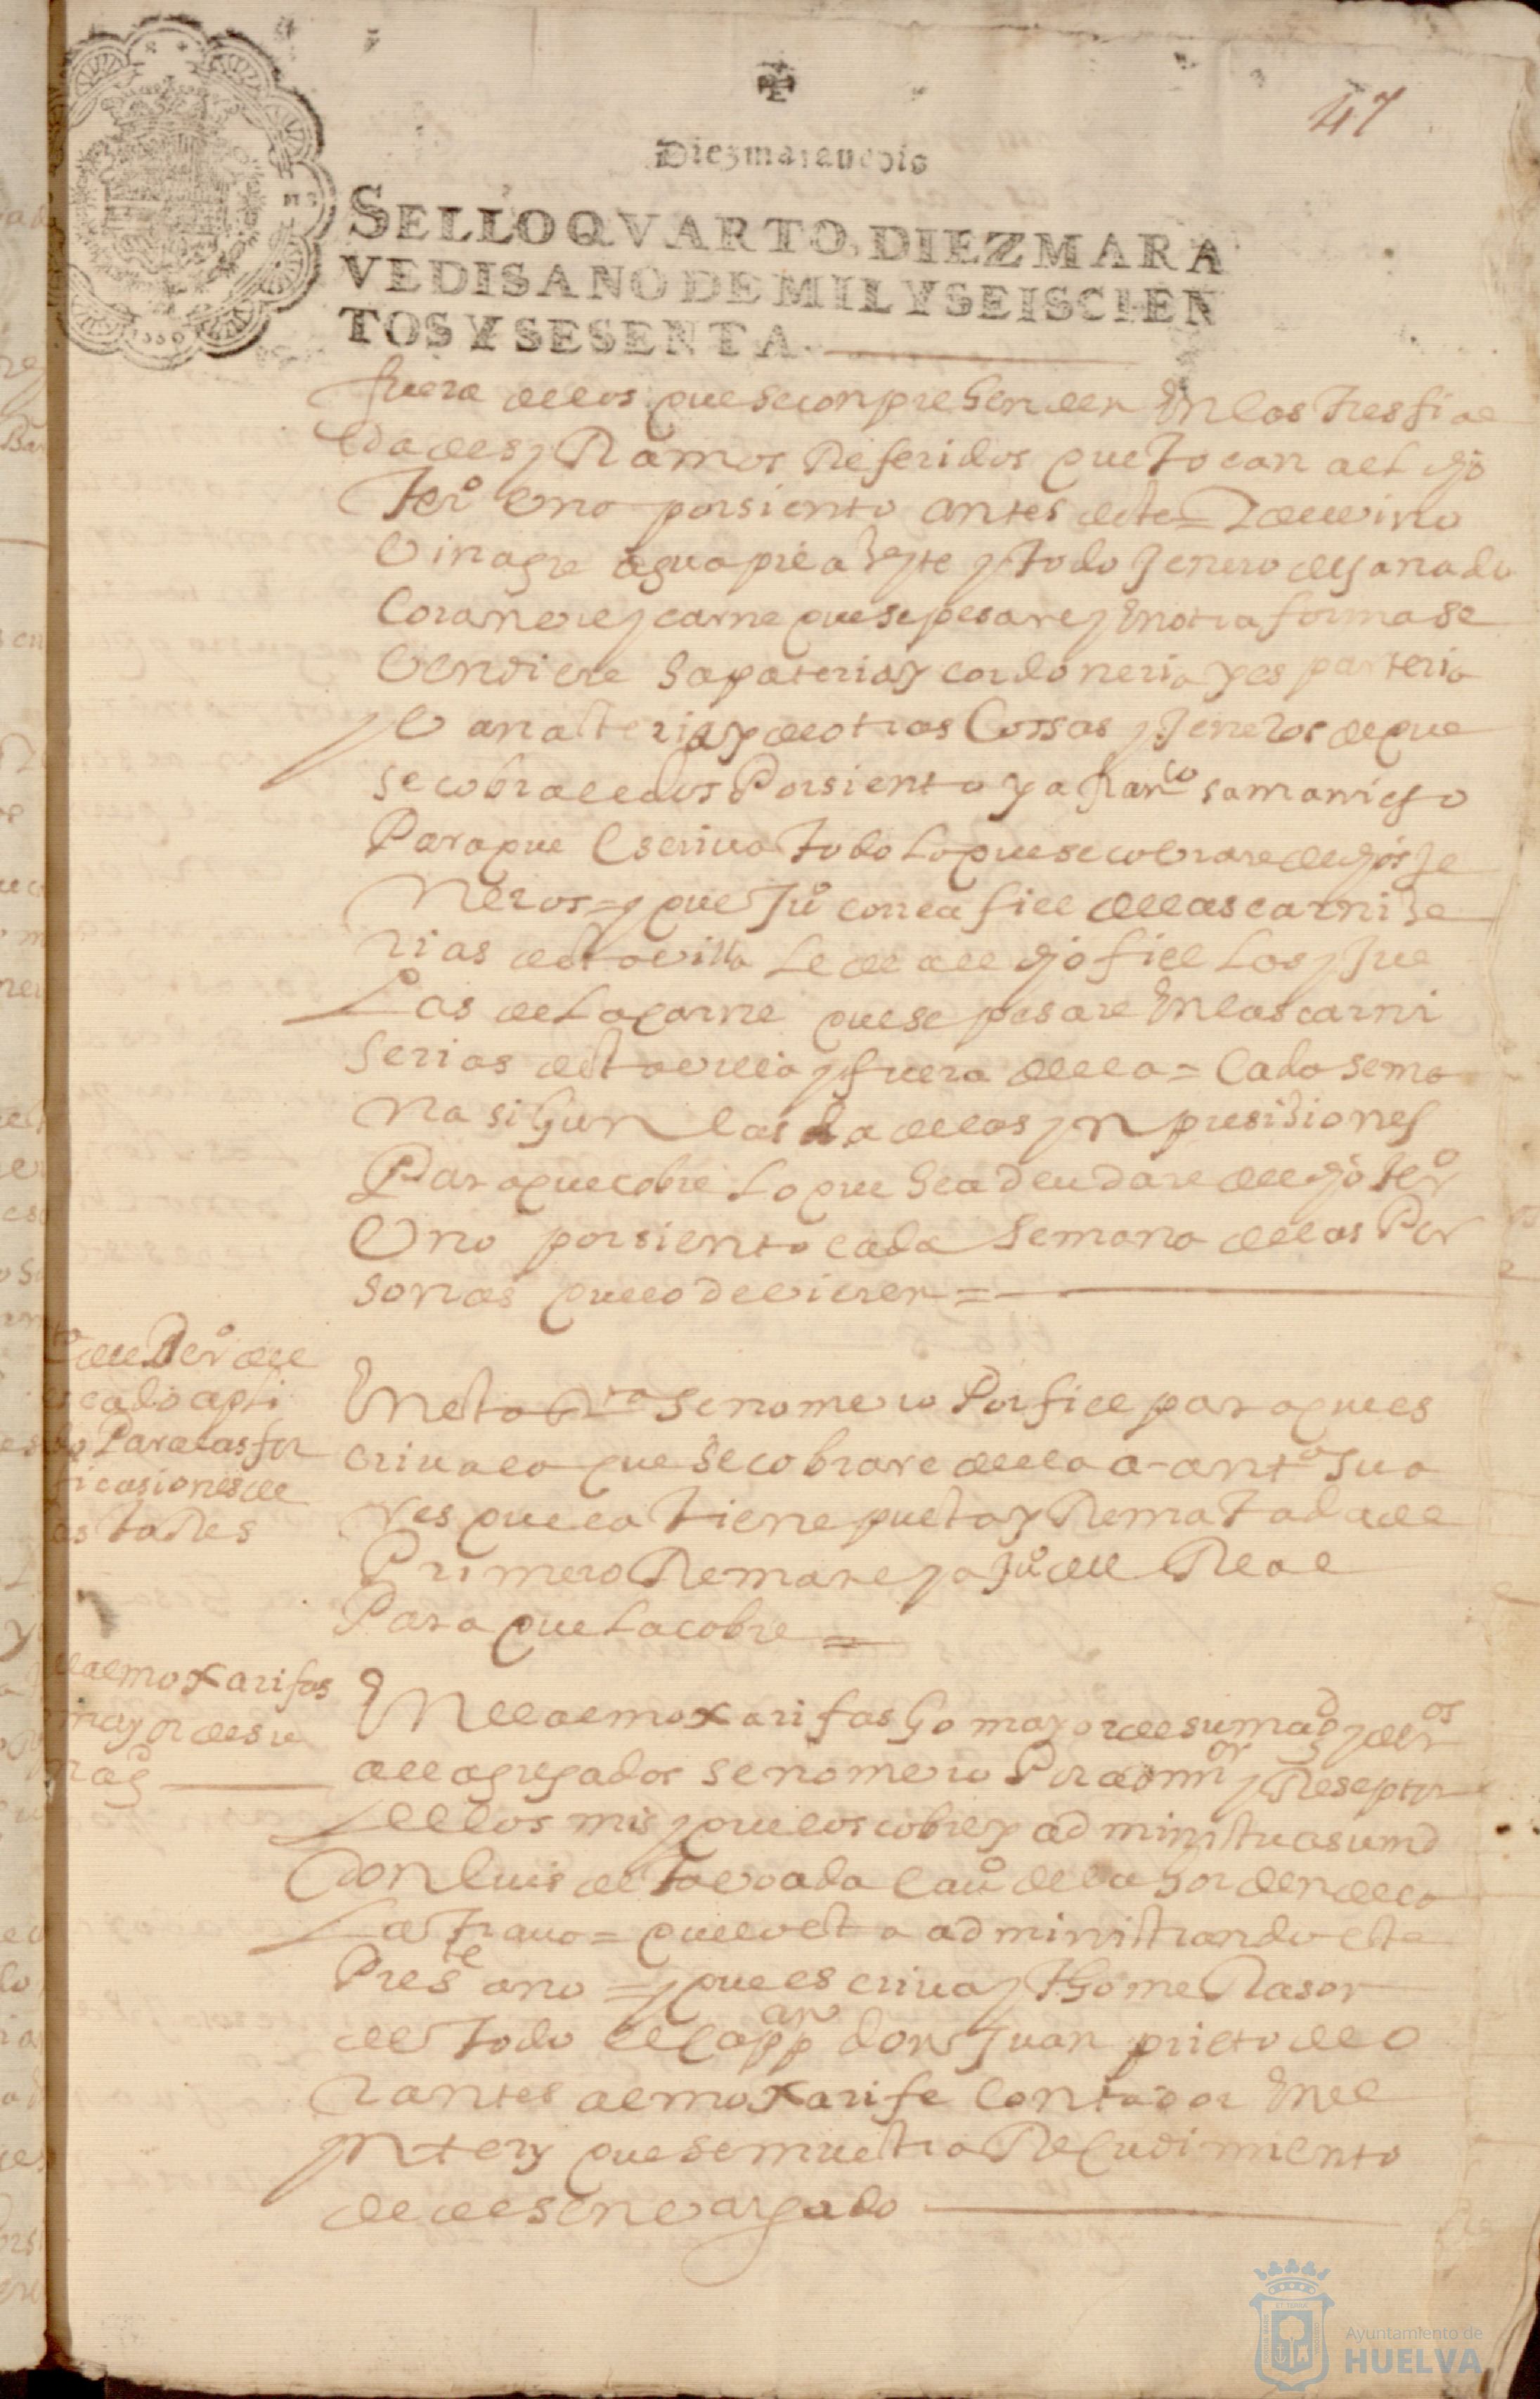 47
Diez maravedis
SELLO QVARTO, DIEZ MARA
VEDIS AÑO DE MIL Y SEISCIEN
TOS Y SESENTA
fuera de los que se conprehenden En las tres fiel
dades y Ramos Referidos que tocan al dho
terº Uno por siento antes deste = del vino
Vinagre aguapie aseyte y todo Jenero de ganado
Coranvre y carne que se pesare y En otra forma se
Vendiere Sapateria y cordoneria y esparteria
y de otras Cossas y Jeneros de que
se cobra el dos Por siento y a franco samaniego
Para que Escriva todo Lo que se cobrare de dhos Je
Neros = y que Juº correa fiel de las carnise
rias desta villa Le de al dho fiel Los
Las de La carne que se pesare En las carni
Serias desta villa y fuera della = Cada sema
na sigun las da de las ynpusisiones
Para que cobre Lo que Se adeudare del dho terº
Uno por siento cada Semana de las Per
sonas que lo devieren =
del Derº del
cado
Para las for
ficasiones de
as tores
En esta Rta Se nombro Por fiel para que es
criva lo que Se cobrare della a antº Sua
res que la tiene puesta y Rematada del
Primero Remate y a Juº del Real
Para que La cobre =
el almoxarifas
mayor de su
magd
En el almoxarifasgo mayor de su magd y deros
al agregados se nombro Por admor y Reseptor
dellos mis y que los cobre y administre a su md
Don luis de Taboada Cavº de la horden de
= que lo esta administrando este
Preste año = y que escriva y thome Rason
de todo el Cappan don Juan prieto de O
rantes almoxarife Contador En el
ynterin que se muestra Recudimiento
de desenbargado
Ayuntamiento de
HUELVA